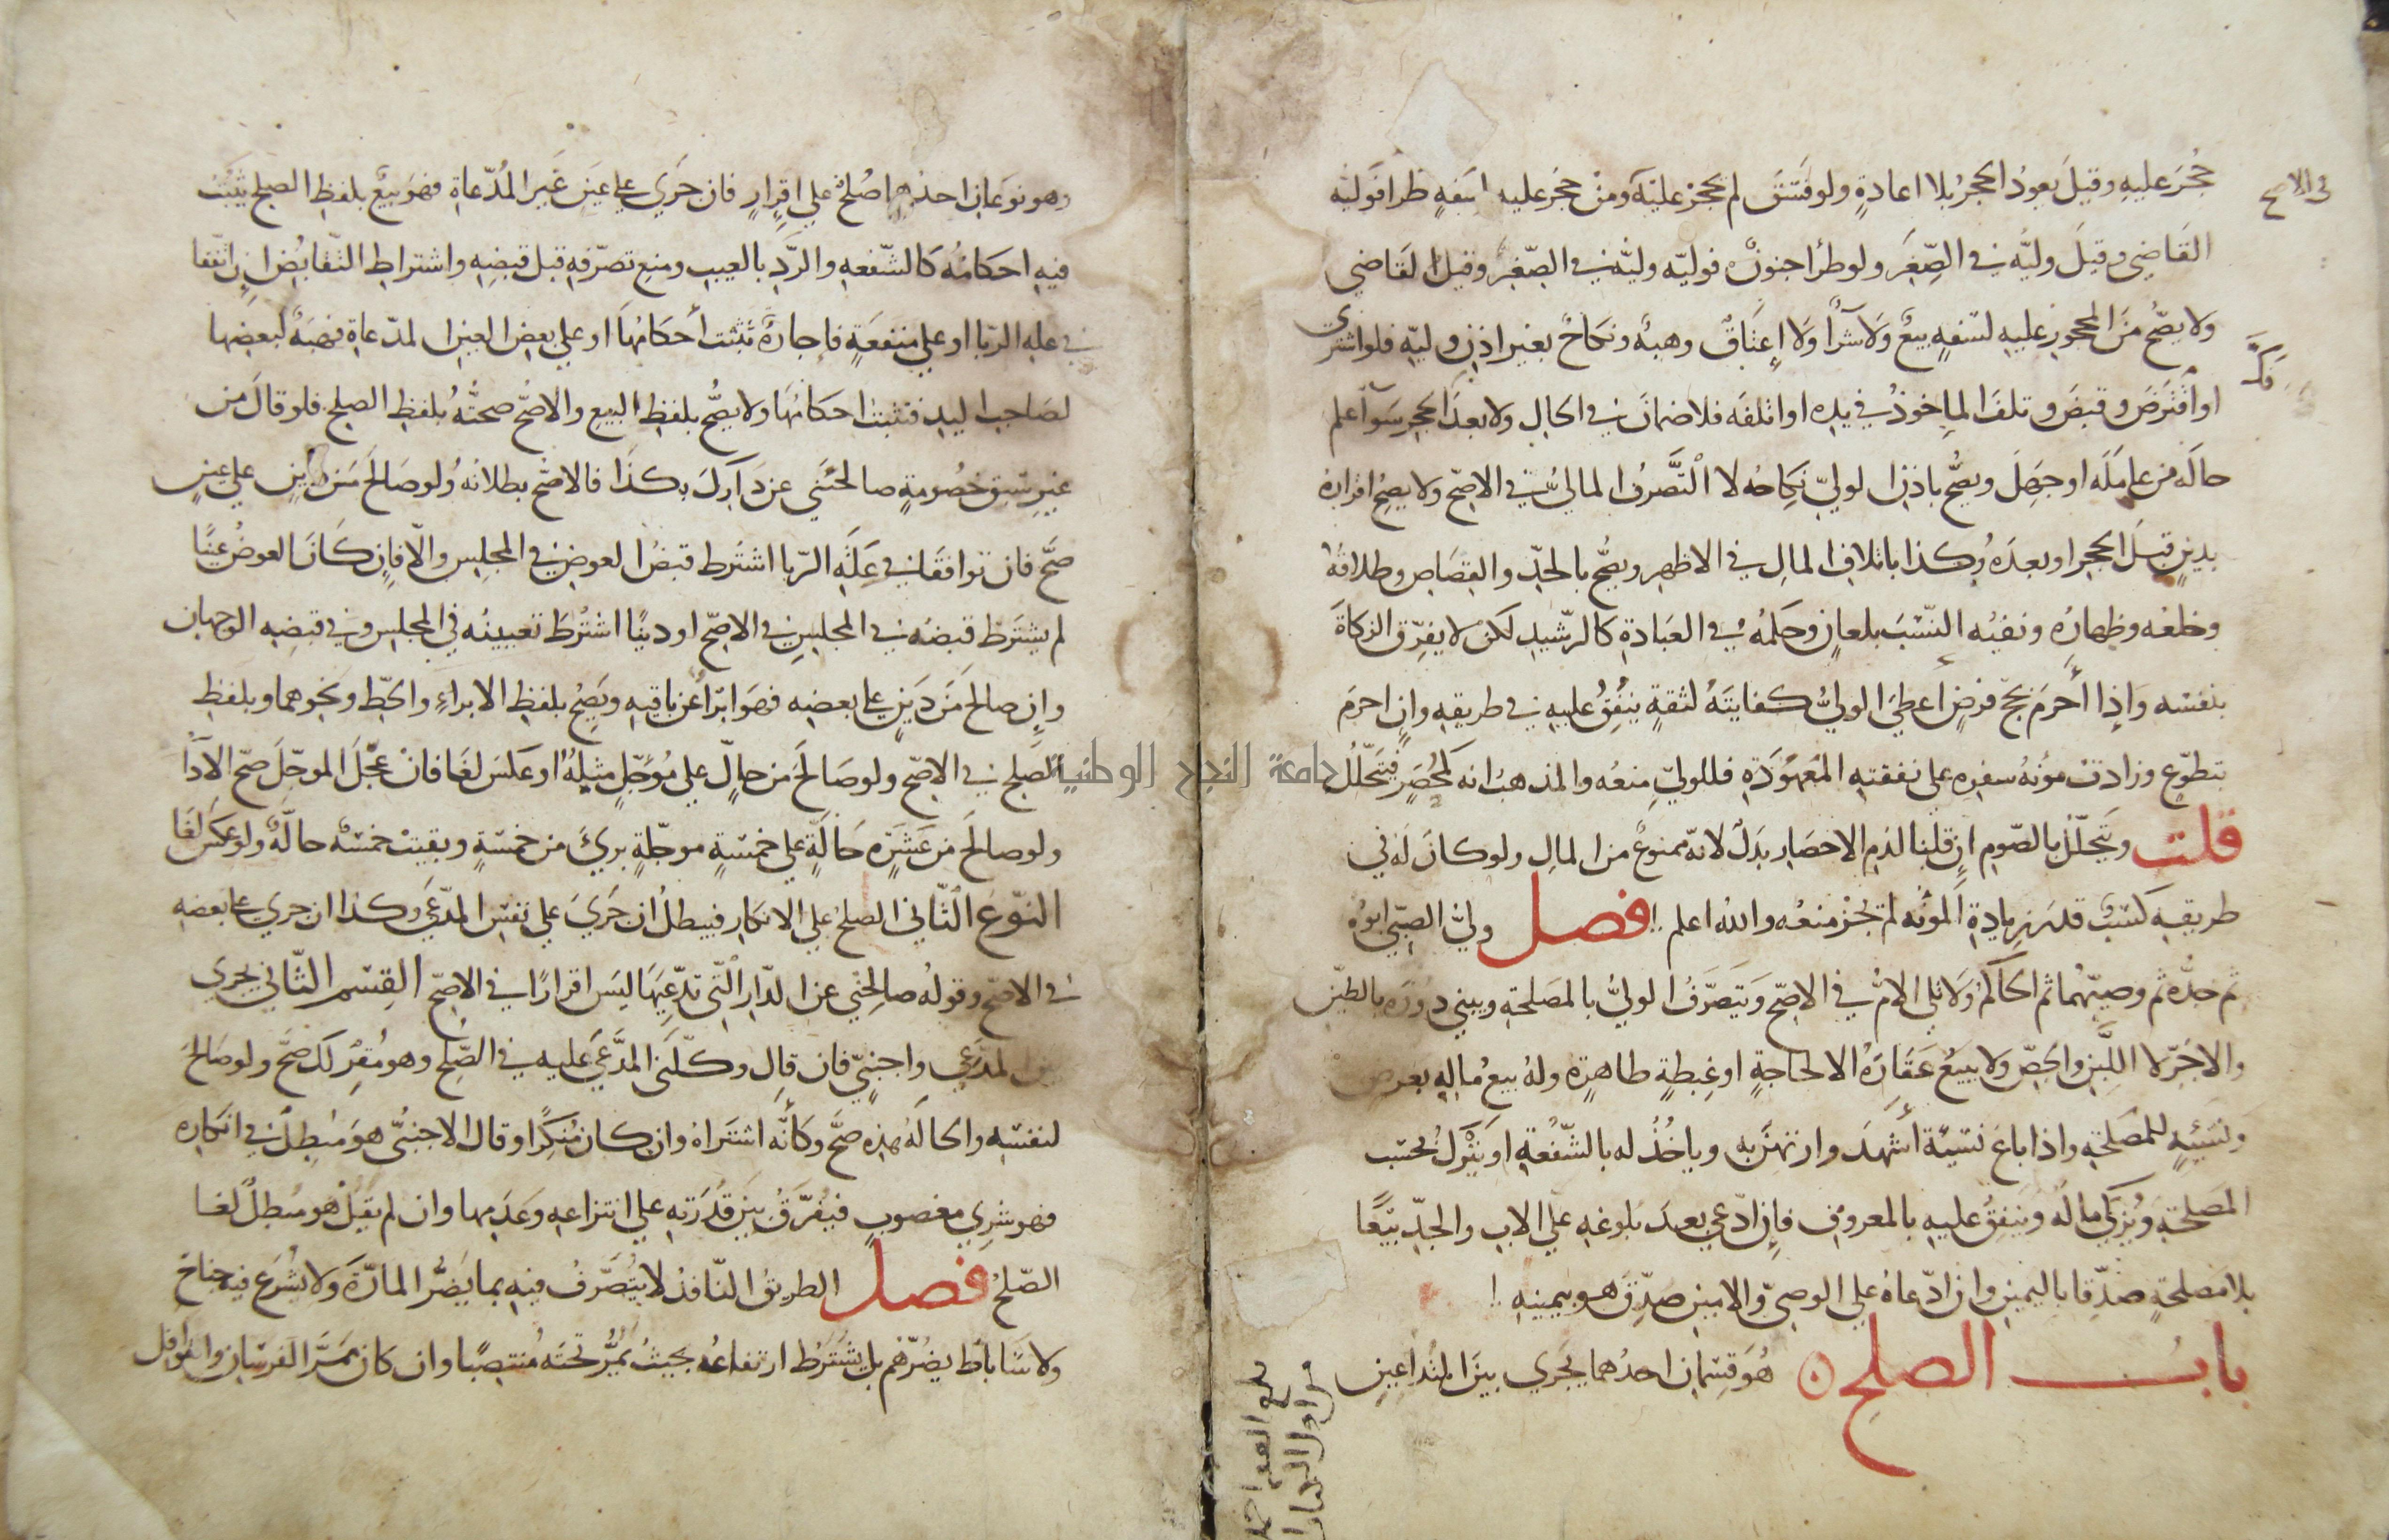 حُجِرَ عليهِ وقيلَ يعودُ الحجرُ بلا اعادةٍ ولو فَسَقَ لم يحجرْ عليْه ومنْ حجر عليه لسَفهٍ طرا فوليّه
في الاصح
القَاضِي وقيلَ وليُّه في الصِّغَر ولو طرأ جنونٌ فوليّه وليّه في الصّغر وقيل القاضي
ولا يصّحُ منَ المحجورِ عليهِ لسَفهٍ بيعٌ وَلا شرآٌ وَلا إعتَاقٌ وهبهٌ ونكاحٌ بغير اذنِ وليّه فلو اشترى
او اقْتَرضَ وقبضَ وتلفَ الماخوذُ في يده او اتلفَه فلا ضمانَ في الحالِ ولا بعدَ الحجر سَوآ علم
حالَه من عامَلَه او جهِلَ ويصُّح باذنِ الوليّ نكاحُه لا التَّصرفُ الماليُّ في الاصّح ولا يصحُ اقرارهُ
بدينٍ قبلَ الحجر او بعدَه وكذا باتلافِ المالِ في الاظهرِ ويصُّح بالحدِّ والقِصَاصِ وطلاقهُ
وخلعُه وظِهارُه ونفيُه النّسَبَ بلعانٍ وحكمُه في العبَادةِ كالرشيدِ لكنْ لا يفرّق الزكاةَ
بنفسه وَإذا أحْرمَ بحجّ فرضٍ أعطى الوليُّ كفايتَهُ لثقةٍ ينْفِقُ عليهِ في طريقهِ وإن احرمَ
بتطوّعٍ وزادتْ مؤنةُ سفرِه على نفقتهِ المَعْهُودَةِ فللوليِّ منعُه والمذهبُ انه كمُحْصَرٍ فيتَحّللُ
قلت ويَتَحلّلُ بالصّومِ إنْ قلْنا لدَمِ الاحصَارِ بدَلٌ لانهّ ممنوعٌ من المالِ ولو كانَ لهُ في
طريقهِ كسبٌ قدرَ زيادةِ المُؤْنه لم يجُزْ منعُه والله اعلم فصل وليُّ الصبّي ابوُه
ثم جدُّه ثم وصيّهُما ثم الحاكمُ وَلا تلي الامُّ في الاصّح وَيَتَصرّفُ الوليُّ بالمَصلَحةِ ويبني دورَه بالطينِ
والاجُرِّ لا اللَّبِنِ والجصِّ ولا يبيعُ عَقَارَهُ الا لحاجةٍ او غِبطةٍ ظاهرةٍ ولهُ بيعُ مالِهِ بعرضٍ
وَنَسيئةٍ للمصْلحَةِ واذا باعَ نسيئة أشهَدَ وارتهَنَ بهِ وياخُذُ له بالشّفْعةِ او يَتْرُكُ بحسَبِ
المصَلحةِ وَيُزكي مالَهُ وَينفقُ عليهِ بالمعروفِ فإن ادّعى بعدَ بلوغهِ على الابِ والجدّ بيْعًا
بلا مَصلحةٍ صَدِّقا باليمينِ وان ادّعاهُ على الوصيّ والامينِ صدّق هو بيمينهِ
بابُ الصلحِ هُوَ قسمانِ احدُهما يجري بينَ المُتدَاعيينِ
وهو نوعَانِ احدُهما صُلحٌ على اقرارٍ فان جرَي على عينٍ غَيرِ المُدّعاةِ فهوَ بيعٌ بلفظِ الصلحِ يَثْبُتُ
فيهِ احكامُه كالشّفعهِ والرَّدِ بالعيبِ ومنعِ تصرّفهِ قبل قبضِهِ واشتراطِ التّقابُضِ إنِ اتّفقا
في علهِ الرّبا او على منفعَةٍ فإجارةٌ تثبُت أحكامُهَا او على بعضِ العينِ المدّعاةِ فهبَةٌ لبَعضِها
لصَاحبِ اليدِ فتثبتُ احكامُهَا ولا يصُّح بلفظِ البيعِ والاصّح صحتُّهُ بلفظِ الصلحِ فلو قالَ من
غيرِ سَبقِ خصُومةٍ صالحْنَي عن دَارِكَ بكذَا فالاصّح بطلانُه وُلو صَالحَ منْ دينٍ على عينٍ
صحَّ فان توافقَا في عِلّةِ الرّبا اشتُرط قبضُ العوضِ في المجلسِ والّا فإن كَانَ العوضُ عينًا
لم يشترَط قبضُه في المجلسِ في الاصّح او دينًا اشتُرطَ تعيينُه في المجلسِ وفي قبضِه الوجهان
وإن صالحَ من دَينٍ على بعضهِ فهوَ ابرآءٌ عن باقيهِ ويَصحُ بلفظِ الابراءِ والحطِّ ونحوهما وبلفظِ
الصلحِ في الاصّح ولو صَالحَ من حالٍّ على مُؤجّلٍ مثلِهُ او عَكسَ لغَا فانْ عجَّلَ الموجّلَ صحّ الادَآءُ
ولو صالحَ من عَشَرَةٍ حَالَّةٍ على خمسَةٍ موجّلةٍ بريَ من خمسَةٍ وبقيتْ خمسَةٌ حالّةٌ ولو عكَسَ لغَا
النّوعُ الثّاني الصلحُ على الانكارِ فيبطلُ ان جَرَيَ على نفسِ المدّعَى وكذا ان جري على بعضه
في الاصّح وقولُه صالِحْني عن الدّارِ الّتي تدّعِيهَا ليسَ اقرارًا في الاصّح القِسْمُ الثّاني يجري
بين المدّعِي واجنبيّ فان قالِ وكّلَني المدَّعَى عليهِ في الصّلحِ وهو مُقِرٌّ لك صحَّ ولو صَالحَ
لنفسهِ والحالَةُ هذِه صحَّ وكأنّه اشتَراهُ وان كان مُنكِرًا وقال الاجنبُّى هوَ مُبطِلٌ في انكاره
فهو شِري مغصوبٍ فيُفرَّقُ بينَ قُدرَتهِ على انتزاعِهِ وَعَدمِها وان لم يقُلْ هو مُبطِلٌ لغا
الصّلحُ فصل الطريقُ النّافذُ لا يُتصَّرفُ فيهِ بما يَضرُّ المارّةَ وَلا يُشْرَع فيه جَناحٌ
ولا سَاباطٌ يضُرّهُم بل يُشتَرطُ ارتفاعُه بحيثُ يمُرُّ تحتَه مُنتصبًا وان كان ممَرَّ الفرسَانِ والقَوَافل
جامعة النجاح الوطنية